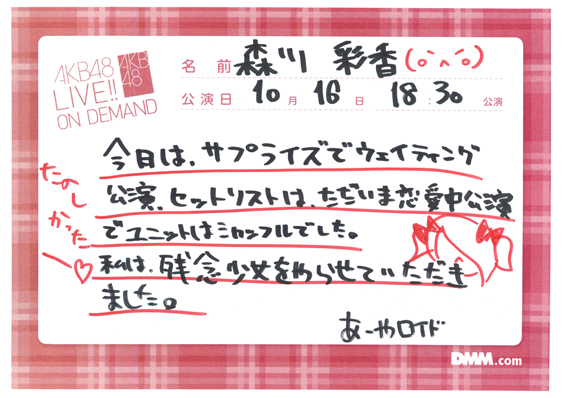 AKB48
LIVE!!
ON DEMAND
AKB
48
名前 森川 彩香
公演日 10月 16日 18:30 公演
今日は、サプライズでウェイティング
公演、セットリストは、ただいま恋愛中公演
でユニットはシャッフルでした。
私は、残念少女をやらせていただき
ました。
たのし
かった
あーやロイド
DMM.com